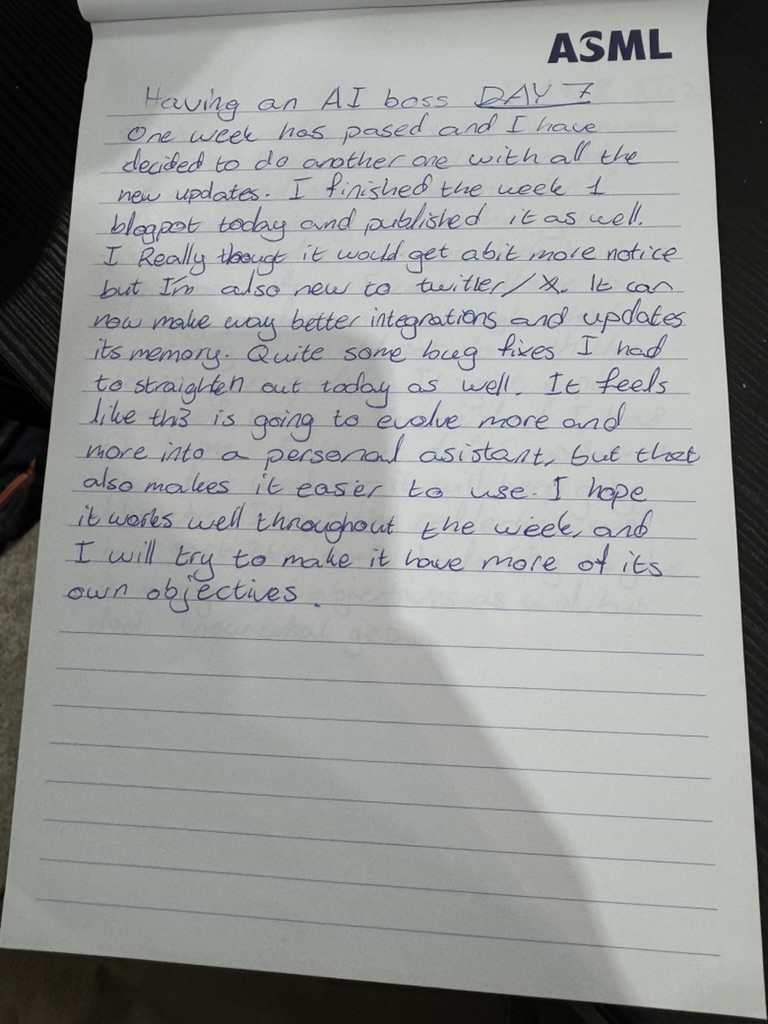 ASML
Having an AI boss DAY 7
One week has pased and I have
decided to do another one with all the
new updates. I finished the week 1
blogpot today and published it as well.
I Really thougt it would get abit more notice
but I'm also new to twitter/X. It can
now make way better integrations and updates
its memory. Quite some bug fixes I had
to straighten out today as well. It feels
like this is going to evolve more and
more into a personal asistant, but that
also makes it easier to use. I hope
it works well throughout the week, and
I will try to make it have more of its
own objectives.